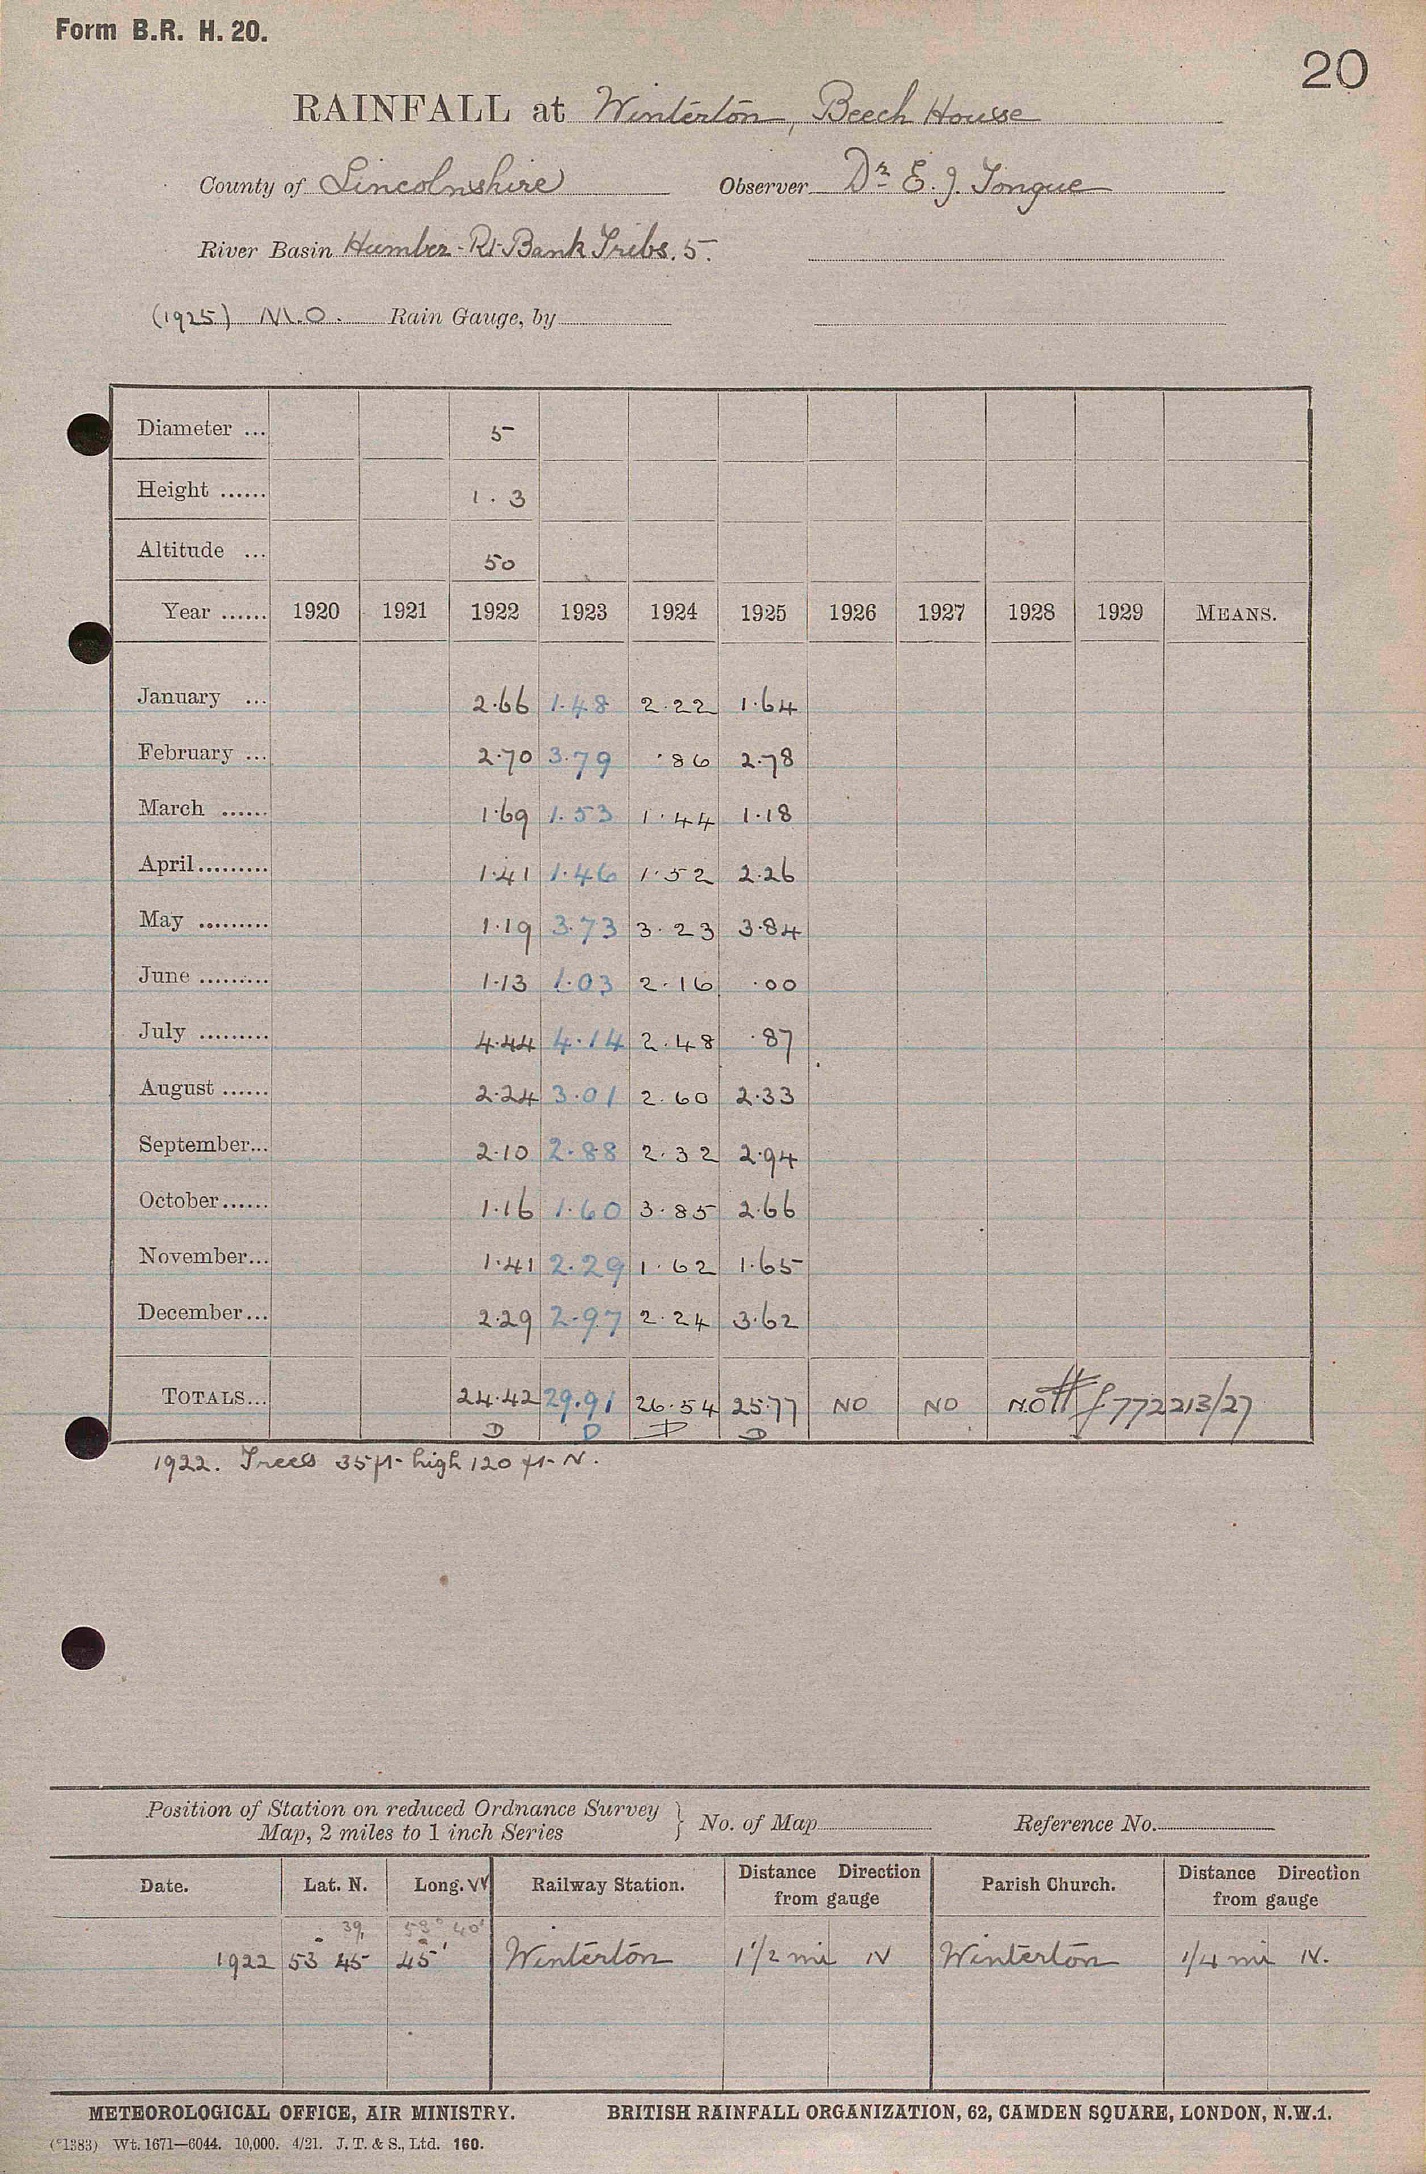 Form B.R. H. 20.
20
RAINFALL at Winterton, Beech House
County of Lincolnshire Observer Dr E. J. Tongue
River Basin Humber - Rt Bank Tribs. 5.
(1925) M.O. Rain Gauge, by
Diameter ... 5
Height ...... 1.3
Altitude ... 50
Year ...... 1920 1921 1922 1923 1924 1925 1926 1927 1928 1929 MEANS.
January ... 2.66 1.48 2.22 1.64
February ... 2.70 3.79 .86 2.78
March ...... 1.69 1.53 1.44 1.18
April......... 1.41 1.46 1.52 2.26
May ......... 1.19 3.73 3.23 3.84
June ......... 1.13 1.03 2.16 .00
July ......... 4.44 4.14 2.48 .87
August ...... 2.24 3.01 2.60 2.33
September... 2.10 2.88 2.32 2.94
October...... 1.16 1.60 3.85 2.66
November... 1.41 2.29 1.62 1.65
December... 2.29 2.97 2.24 3.62
TOTALS... 24.42 29.91 26.54 25.77 NO NO N.O 772213/27
D D D D
1922. Trees 35 ft high 120 ft N.
Position of Station on reduced Ordnance Survey
Map, 2 miles to 1 inch Series } No. of Map Reference No.
Date. Lat. N. Long. W Railway Station. Distance Direction from gauge Parish Church. Distance Direction from gauge
39, 53° 40'
1922 53° 45 45' Winterton 1 1/2 mi N Winterton 1/4 mi N.
METEOROLOGICAL OFFICE, AIR MINISTRY. BRITISH RAINFALL ORGANIZATION, 62, CAMDEN SQUARE, LONDON, N.W.1.
(*1383) Wt. 1671—6044. 10,000. 4/21. J. T. & S., Ltd. 160.